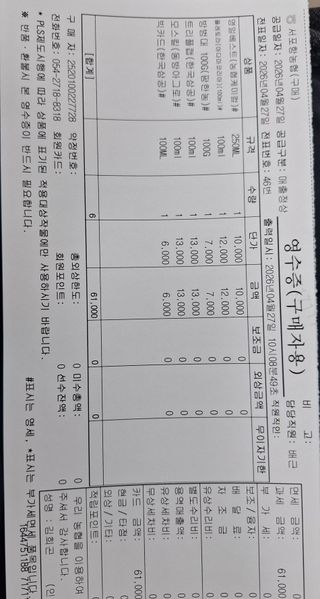 영수증(구매자용)
서포항농협(구매)
공급일자: 2026년04월27일 공급구분: 매출정상
전표일자: 2026년04월27일 전표번호: 46번
출력일시: 2026년04월27일 10시08분49초 직원확인:
비 고:
담당직원: 배근
상품 규격 수량 단가 금액 보조금 외상금액 무이자기한
영일베스트(농협케미컬)# 250ML 1 10,000 10,000 0 0
100ml 1 12,000 12,000 0 0
방범대 100G(팜한농)# 100G 1 7,000 7,000 0 0
트리플칼(한국삼공)# 100ml 1 13,000 13,000 0 0
모스킬(동방아그로)# 100ml 1 13,000 13,000 0 0
빅카드(한국삼공)# 100ML 1 6,000 6,000 0 0
[합계] 6 61,000 0 0
면세 금액: 0
과세 금액: 61,000
부 가 세:
보조/융자:
배 달 료: 0
자 조 금: 0
유상수리비: 0
별도수리비: 0
용역매출액: 0
유상세차비: 0
무상세차비: 0
카드 금액: 61,000
현금/타점: 0
외상/기타: 0
적립포인트: 0
구 매 자: 2520100227728 약정번호: 총외상한도: 0 미수총액: 0
전화번호: 054-2718-8318 회원카드: 회원포인트: 0 선수잔액: 0
우리 농협을 이용하여
주셔서 감사합니다.
성명: 김희근 (인
* PLS제도시행에 따라 상품에 표기된 적용대상작물에만 사용하시기 바랍니다.
※ 반품·환불시 본 영수증이 반드시 필요합니다.
#표시는 영세, *표시는 부가세면세 품목입니다.